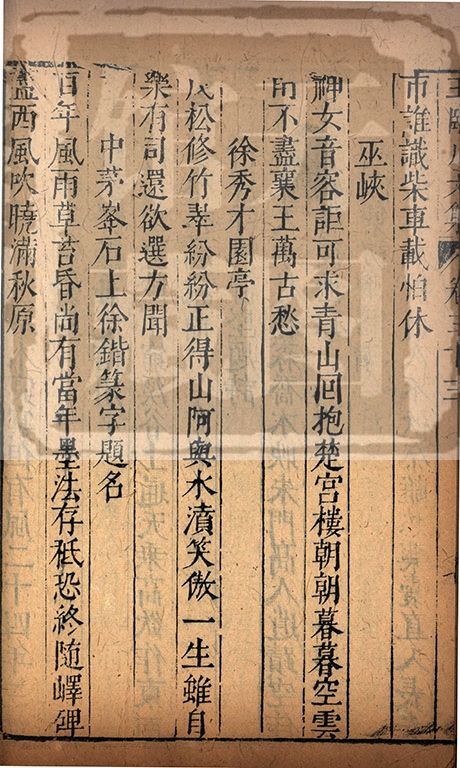 王臨川文集 卷三十三
市誰識柴車載怕休
巫峽
神女音容詎可求青山回抱楚宮樓朝朝暮暮空雲
雨不盡襄王萬古愁
徐秀才園亭
茂松修竹翠紛紛正得山阿與水濆笑傲一生雖自
樂有司還欲選方聞
中茅峯石上徐鍇篆字題名
百年風雨草苔昏尚有當年墨法存秪恐終隨嶧碑
盡西風吹曉滿秋原